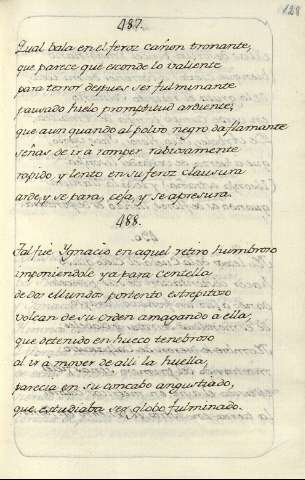 128
487.
Qual bala en el feroz cañon tronante,
que parece que esconde lo valiente
para terror depues ser fulminante
pausado huelo promptitud ardiente;
que aun quando al polvo negro da flamante
señas de ir à romper rabiosamente
rapido, y lento en su feroz clausura
arde, y se para, cesa, y se apresura.
488.
Tal fue Ygnacio en aquel retiro humbroso
imponiendole ya para Centella
de dos Mundos portento estrepitoso
volcan de su orden amagando a ella;
que detenido en hueco tenebroso
al ir à mover de alli la huella,
parecia en su concabo angustiado,
que estudiaba ser globo fulminado.